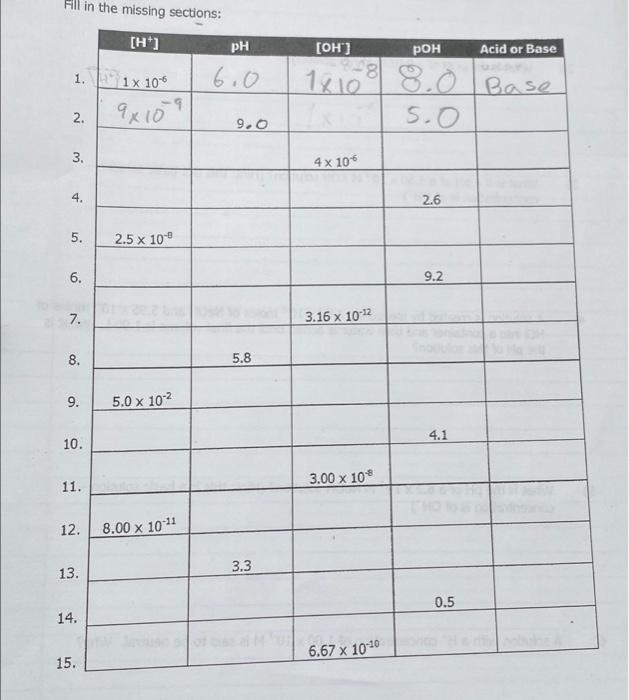 Fill in the missing sections:
[H⁺] pH [OH⁻] pOH Acid or Base
1. 1 x 10⁻⁶ 6.0 1x10⁻⁸ 8.0 Base
2. 9x10⁻⁹ 9.0 5.0
3. 4 x 10⁻⁶
4. 2.6
5. 2.5 x 10⁻⁸
6. 9.2
7. 3.16 x 10⁻¹²
8. 5.8
9. 5.0 x 10⁻²
10. 4.1
11. 3.00 x 10⁻⁸
12. 8.00 x 10⁻¹¹
13. 3.3
14. 0.5
15. 6.67 x 10⁻¹⁰